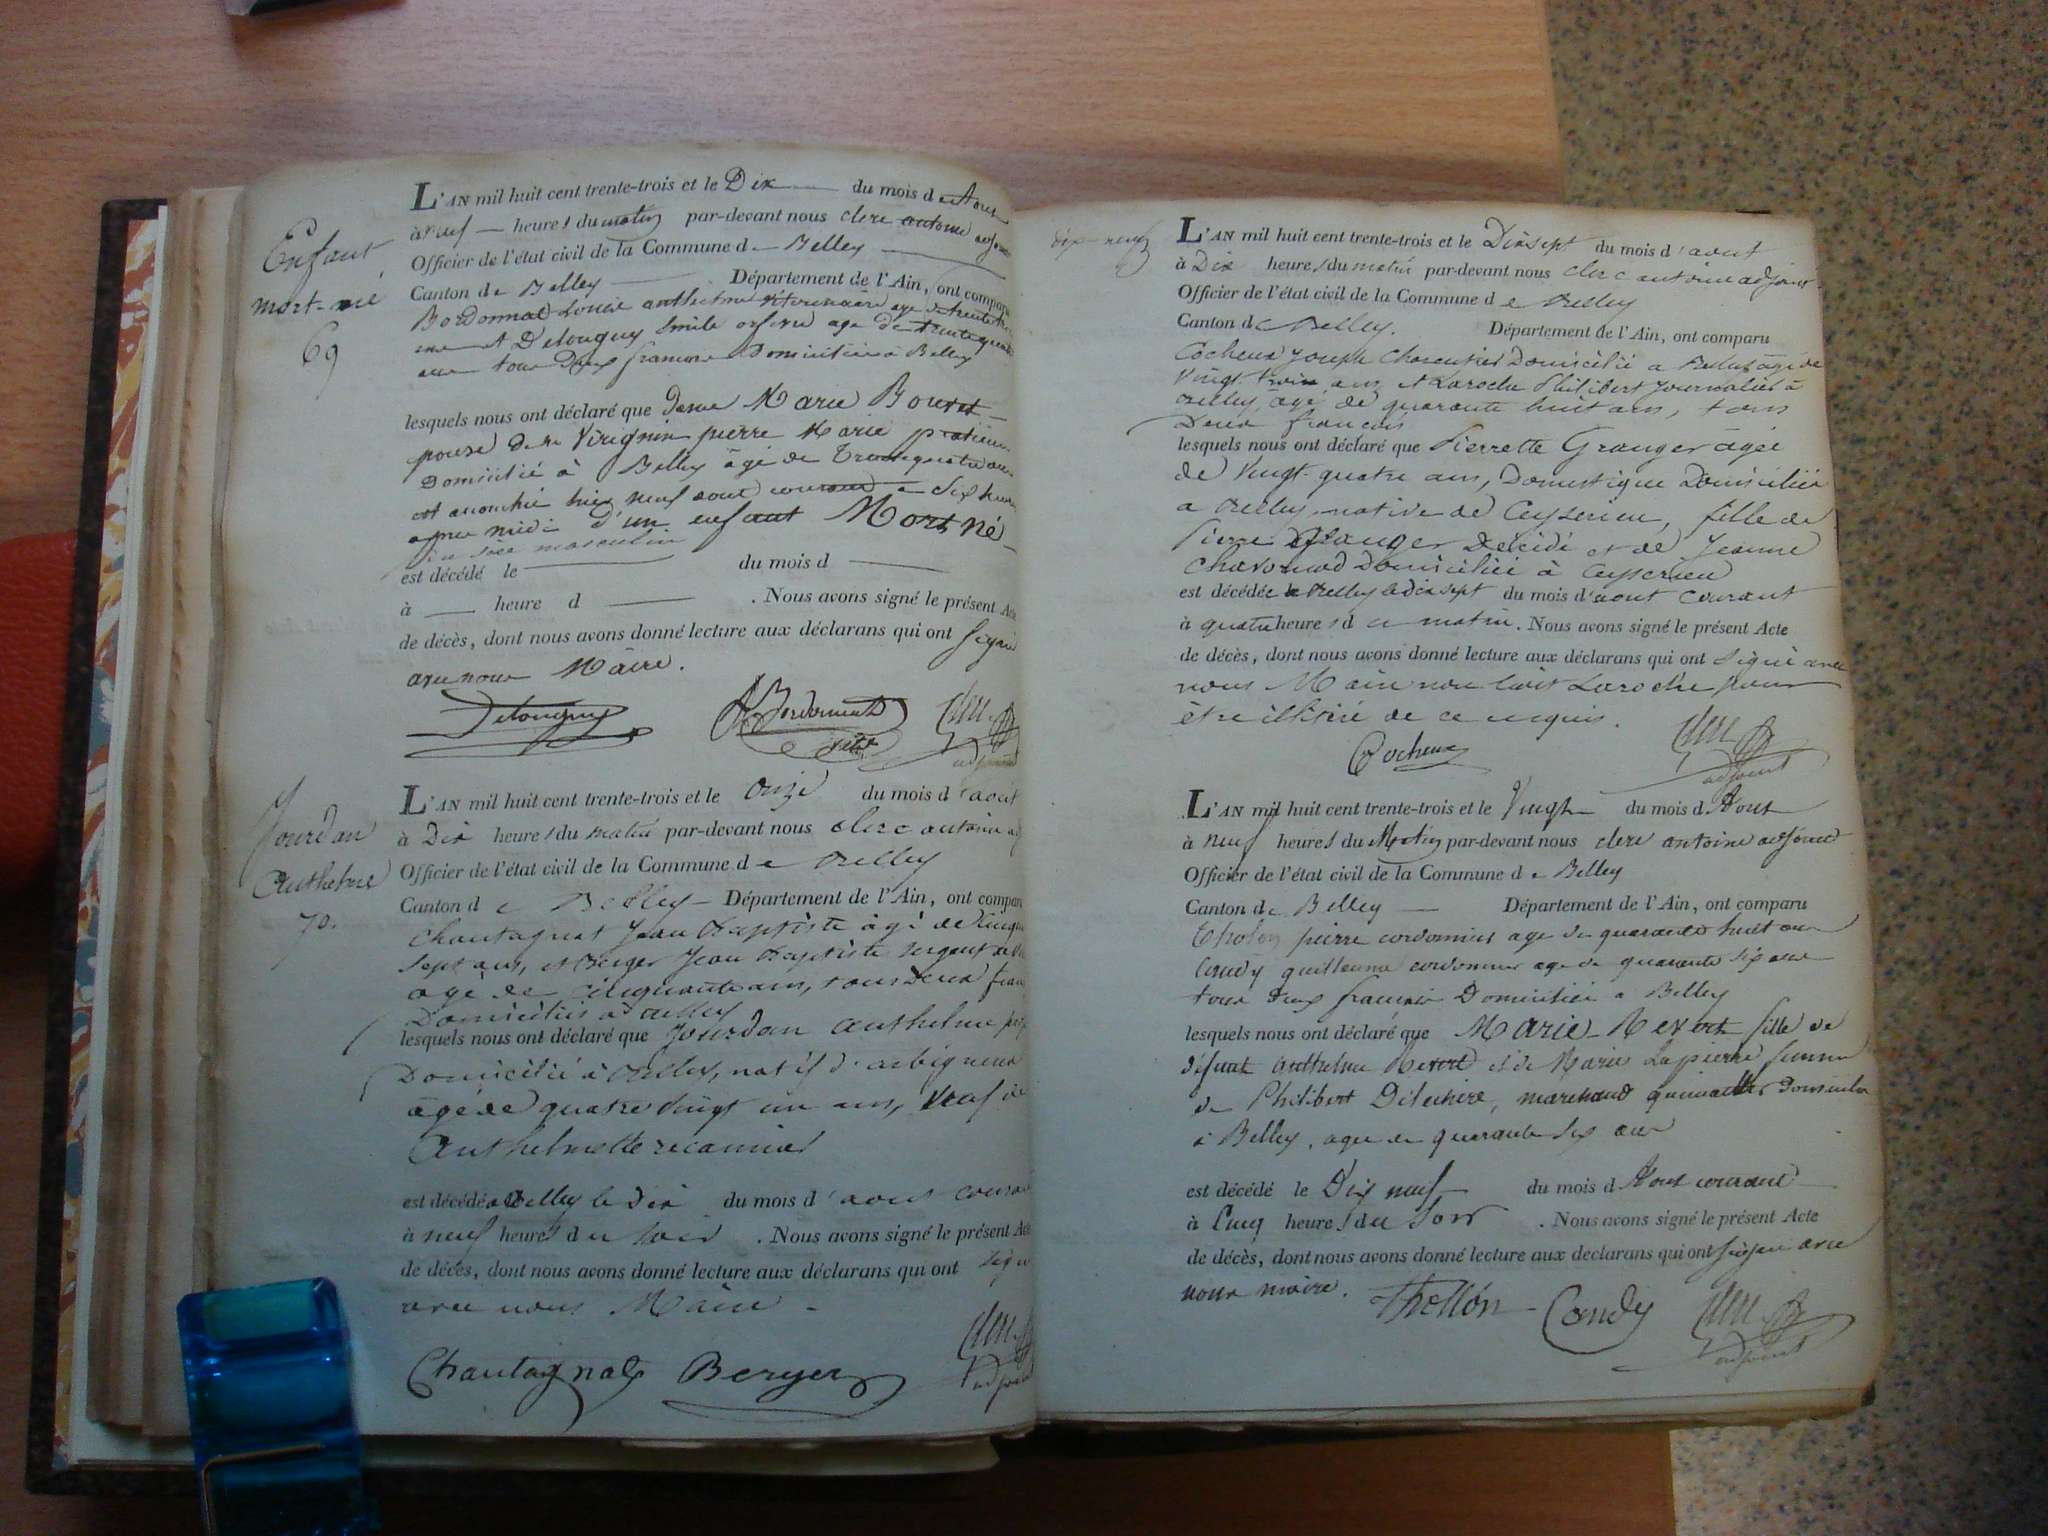 Enfant
mort-né
69
L'AN mil huit cent trente-trois et le Dix du mois d'Aout
à neuf heures du matin par-devant nous clerc antoine adjoint
Officier de l'état civil de la Commune de Belley
Canton de Belley Département de l'Ain, ont comparu
Bordonnat Louis anthelme veterinaire age de trente
et Delouguy Emile age de trente quatre
ans tous Deux francais Domiciliés à Belley
lesquels nous ont déclaré que dame Marie Bouvet
epouse de Virignin pierre Marie praticien
Domicilié à Belley âgé de trente quatre ans
est accouchée hier neuf aout courant a Six heures
apres midi d'un enfant Mort né
du sexe masculin
est décédé le du mois d
à heure d . Nous avons signé le présent Acte
de décès, dont nous avons donné lecture aux déclarans qui ont signé
avec nous Maire.
Delouguy Bordonnat clerc
adjoint
Jourdan
Anthelme
70.
L'AN mil huit cent trente-trois et le onze du mois d'aout
à Dix heures du matin par-devant nous clerc antoine adj
Officier de l'état civil de la Commune de Belley
Canton de Belley Département de l'Ain, ont comparu
Chautagnat Jean Baptiste âgé de
sept ans, et Berger Jean Baptiste sergent de
âgé de cinquante ans, tous deux franc
Domiciliés à Belley
lesquels nous ont déclaré que Jourdan anthelme
Domicilié à Belley, natif d'arbigneux
âgé de quatre vingt un ans, veuf de
Anthelmette recamier
est décédé a Belley le dix du mois d'aout courant
à neuf heures du soir . Nous avons signé le présent Acte
de décès, dont nous avons donné lecture aux déclarans qui ont signé
avec nous Maire
Chautagnat Berger clerc
adjoint
dix-neuf
L'AN mil huit cent trente-trois et le Dixsept du mois d'aout
à Dix heures du matin par-devant nous clerc antoine adjoint
Officier de l'état civil de la Commune de Belley
Canton de Belley. Département de l'Ain, ont comparu
Cocheux Joseph Charcutier Domicilié a Belley âgé de
Vingt trois ans et Laroche Philibert Journalier à
Belley, âgé de quarante huit ans, tous
Deux francais
lesquels nous ont déclaré que Pierrette Granger âgée
de Vingt-quatre ans, Domestique Domiciliée
a Belley, native de Ceyserieu, fille de
Pierre Granger Décédé et de Jeanne
Chavonnod Domiciliée à Ceyserieu
est décédée a Belley le dixsept du mois d'aout courant
à quatre heures du matin. Nous avons signé le présent Acte
de décès, dont nous avons donné lecture aux déclarans qui ont signé avec
nous Maire non ledit Laroche pour
être illitéré de ce enquis.
Cocheux clerc
adjoint
L'AN mil huit cent trente-trois et le Vingt du mois d'Aout
à neuf heures du Matin par-devant nous clerc antoine adjoint
Officier de l'état civil de la Commune de Belley
Canton de Belley Département de l'Ain, ont comparu
Tholon pierre cordonnier age de quarante huit ans
Candy guillaume cordonnier age de quarante six ans
tous deux francais Domiciliés a Belley
lesquels nous ont déclaré que Marie Revert fille de
défunt anthelme Revert et de Marie Lapierre femme
de Philibert Diléchère, marchand quincailler Domicilié
à Belley, agée de quarante six ans
est décédé le Dix neuf du mois d'Aout courant
à Cinq heures du Soir . Nous avons signé le présent Acte
de décès, dont nous avons donné lecture aux declarans qui ont signé avec
nous maire. Thollon Candy clerc
adjoint